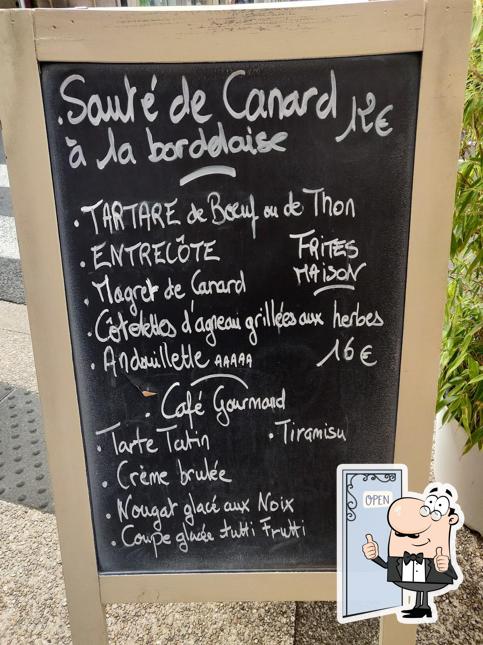 . Sauté de Canard
12€
à la bordelaise
. TARTARE de Bœuf ou de Thon
. ENTRECÔTE
FRITES
MAISON
. Magret de Canard
. Côtelettes d'agneau grillées aux herbes
. Andouillette AAAAA
16€
. Café Gourmand
. Tarte Tatin
. Tiramisu
. Crème brulée
. Nougat glacé aux Noix
. Coupe glacée tutti Frutti
OPEN